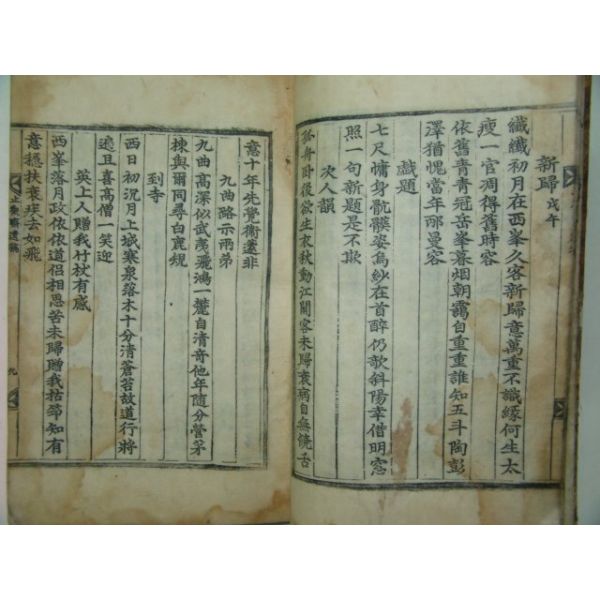 新歸 戊午
纖纖初月在西峯久客新歸意萬重不識緣何生太
瘦一官凋得舊時容
依舊青青冠岳峯暮烟朝靄自重重誰知五斗陶彭
澤猶愧當年鄭曼容
戲題
七尺慵身骯髒姿烏紗在首醉仍欹斜陽幸借明窓
照一句新題是不欺
次人韻
孤舟卧後欲生衣秋動江關客未歸衰病自無饒舌
意十年先覺衛蘧非
九曲路示兩弟
九曲高深似武夷飛鴻一麓自清奇他年隨分營茅
棟與爾同尋白鹿規
到寺
西日初沉月上城寒泉落木十分清蒼苔故道行將
遍且喜高僧一笑迎
英上人贈我竹杖有感
西峯落月政依依道侶相思苦未歸贈我枯笻知有
意穩扶衰疾去如飛
九